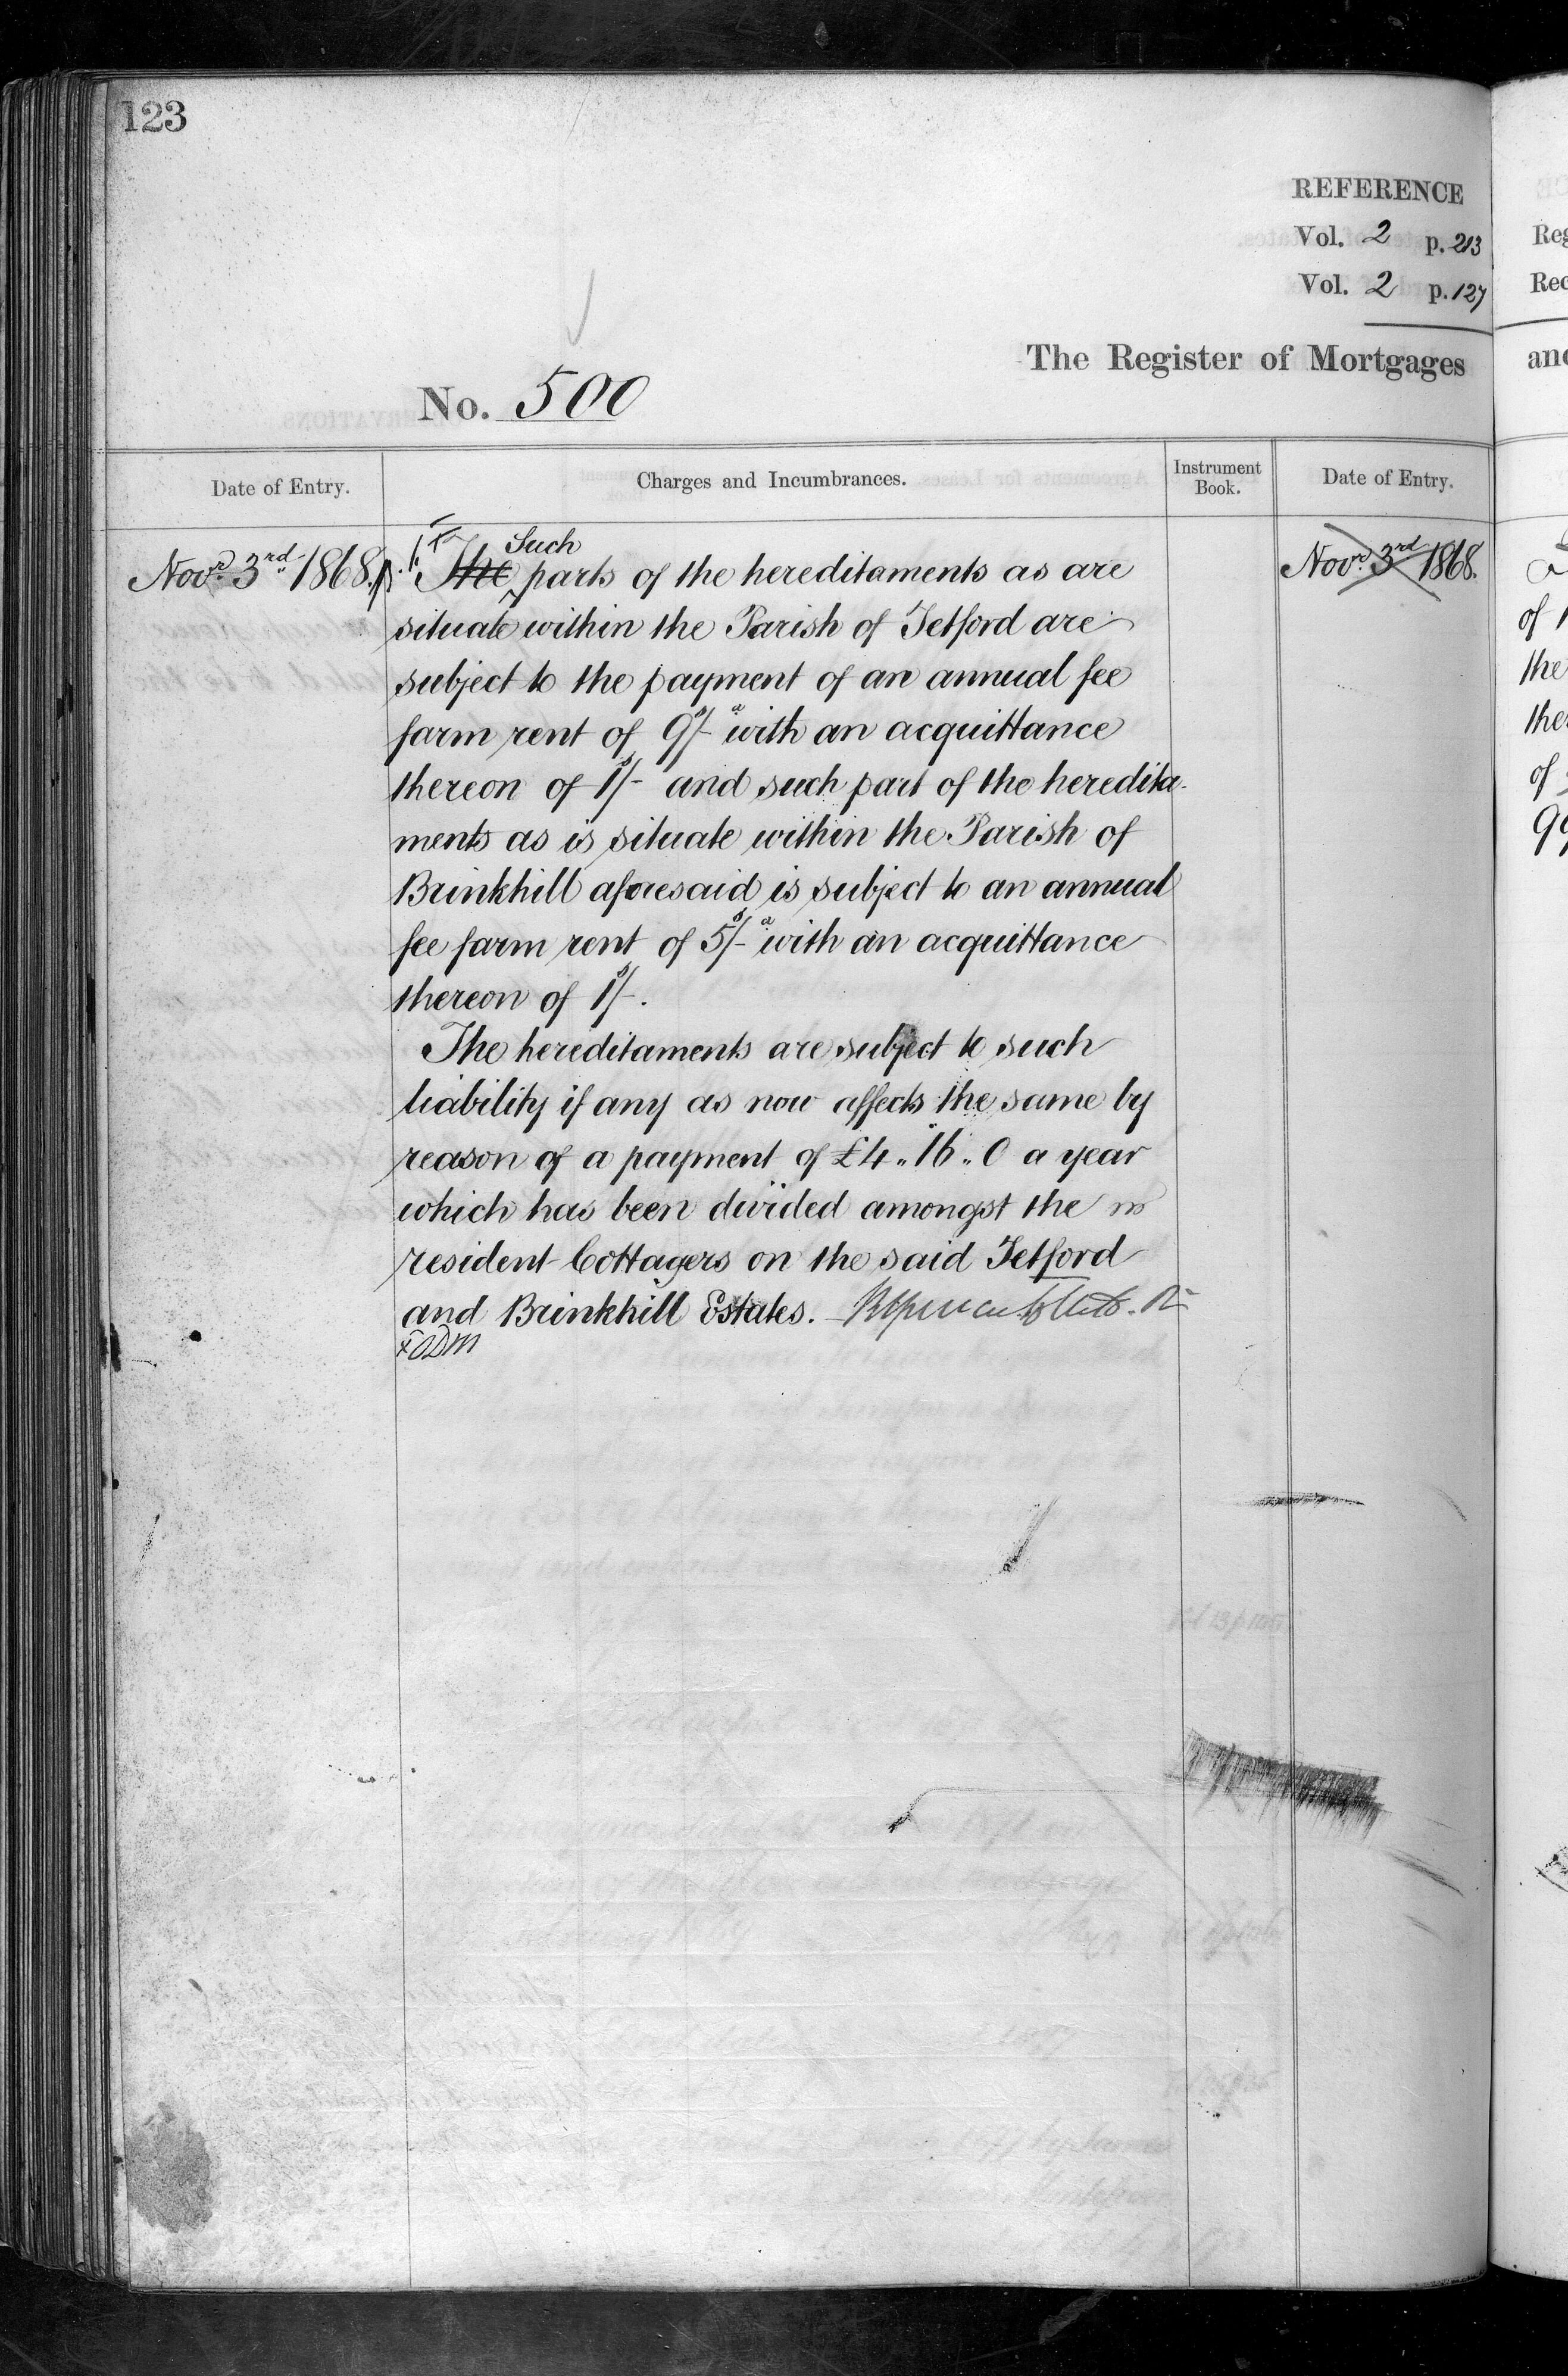 123
REFERENCE
Vol. 2 p. 213
Vol. 2 p. 127
The Register of Mortgages
No. 500
Date of Entry.
Charges and Incumbrances.
Instrument Book.
Date of Entry.
Novr. 3rd 1868.
Such
The parts of the hereditaments as are
situate within the Parish of Tetford are
subject to the payment of an annual fee
farm rent of 9s/-d with an acquittance
thereon of 1s/- and such part of the heredita-
ments as is situate within the Parish of
Brinkhill aforesaid is subject to an annual
fee farm rent of 5s/-d with an acquittance
thereon of 1s/-.
The hereditaments are subject to such
liability if any as now affects the same by
reason of a payment of £4..16..0 a year
which has been divided amongst the
resident Cottagers on the said Tetford
and Brinkhill Estates.
Novr. 3rd 1868.
Reg
Rec
and
of
the
of